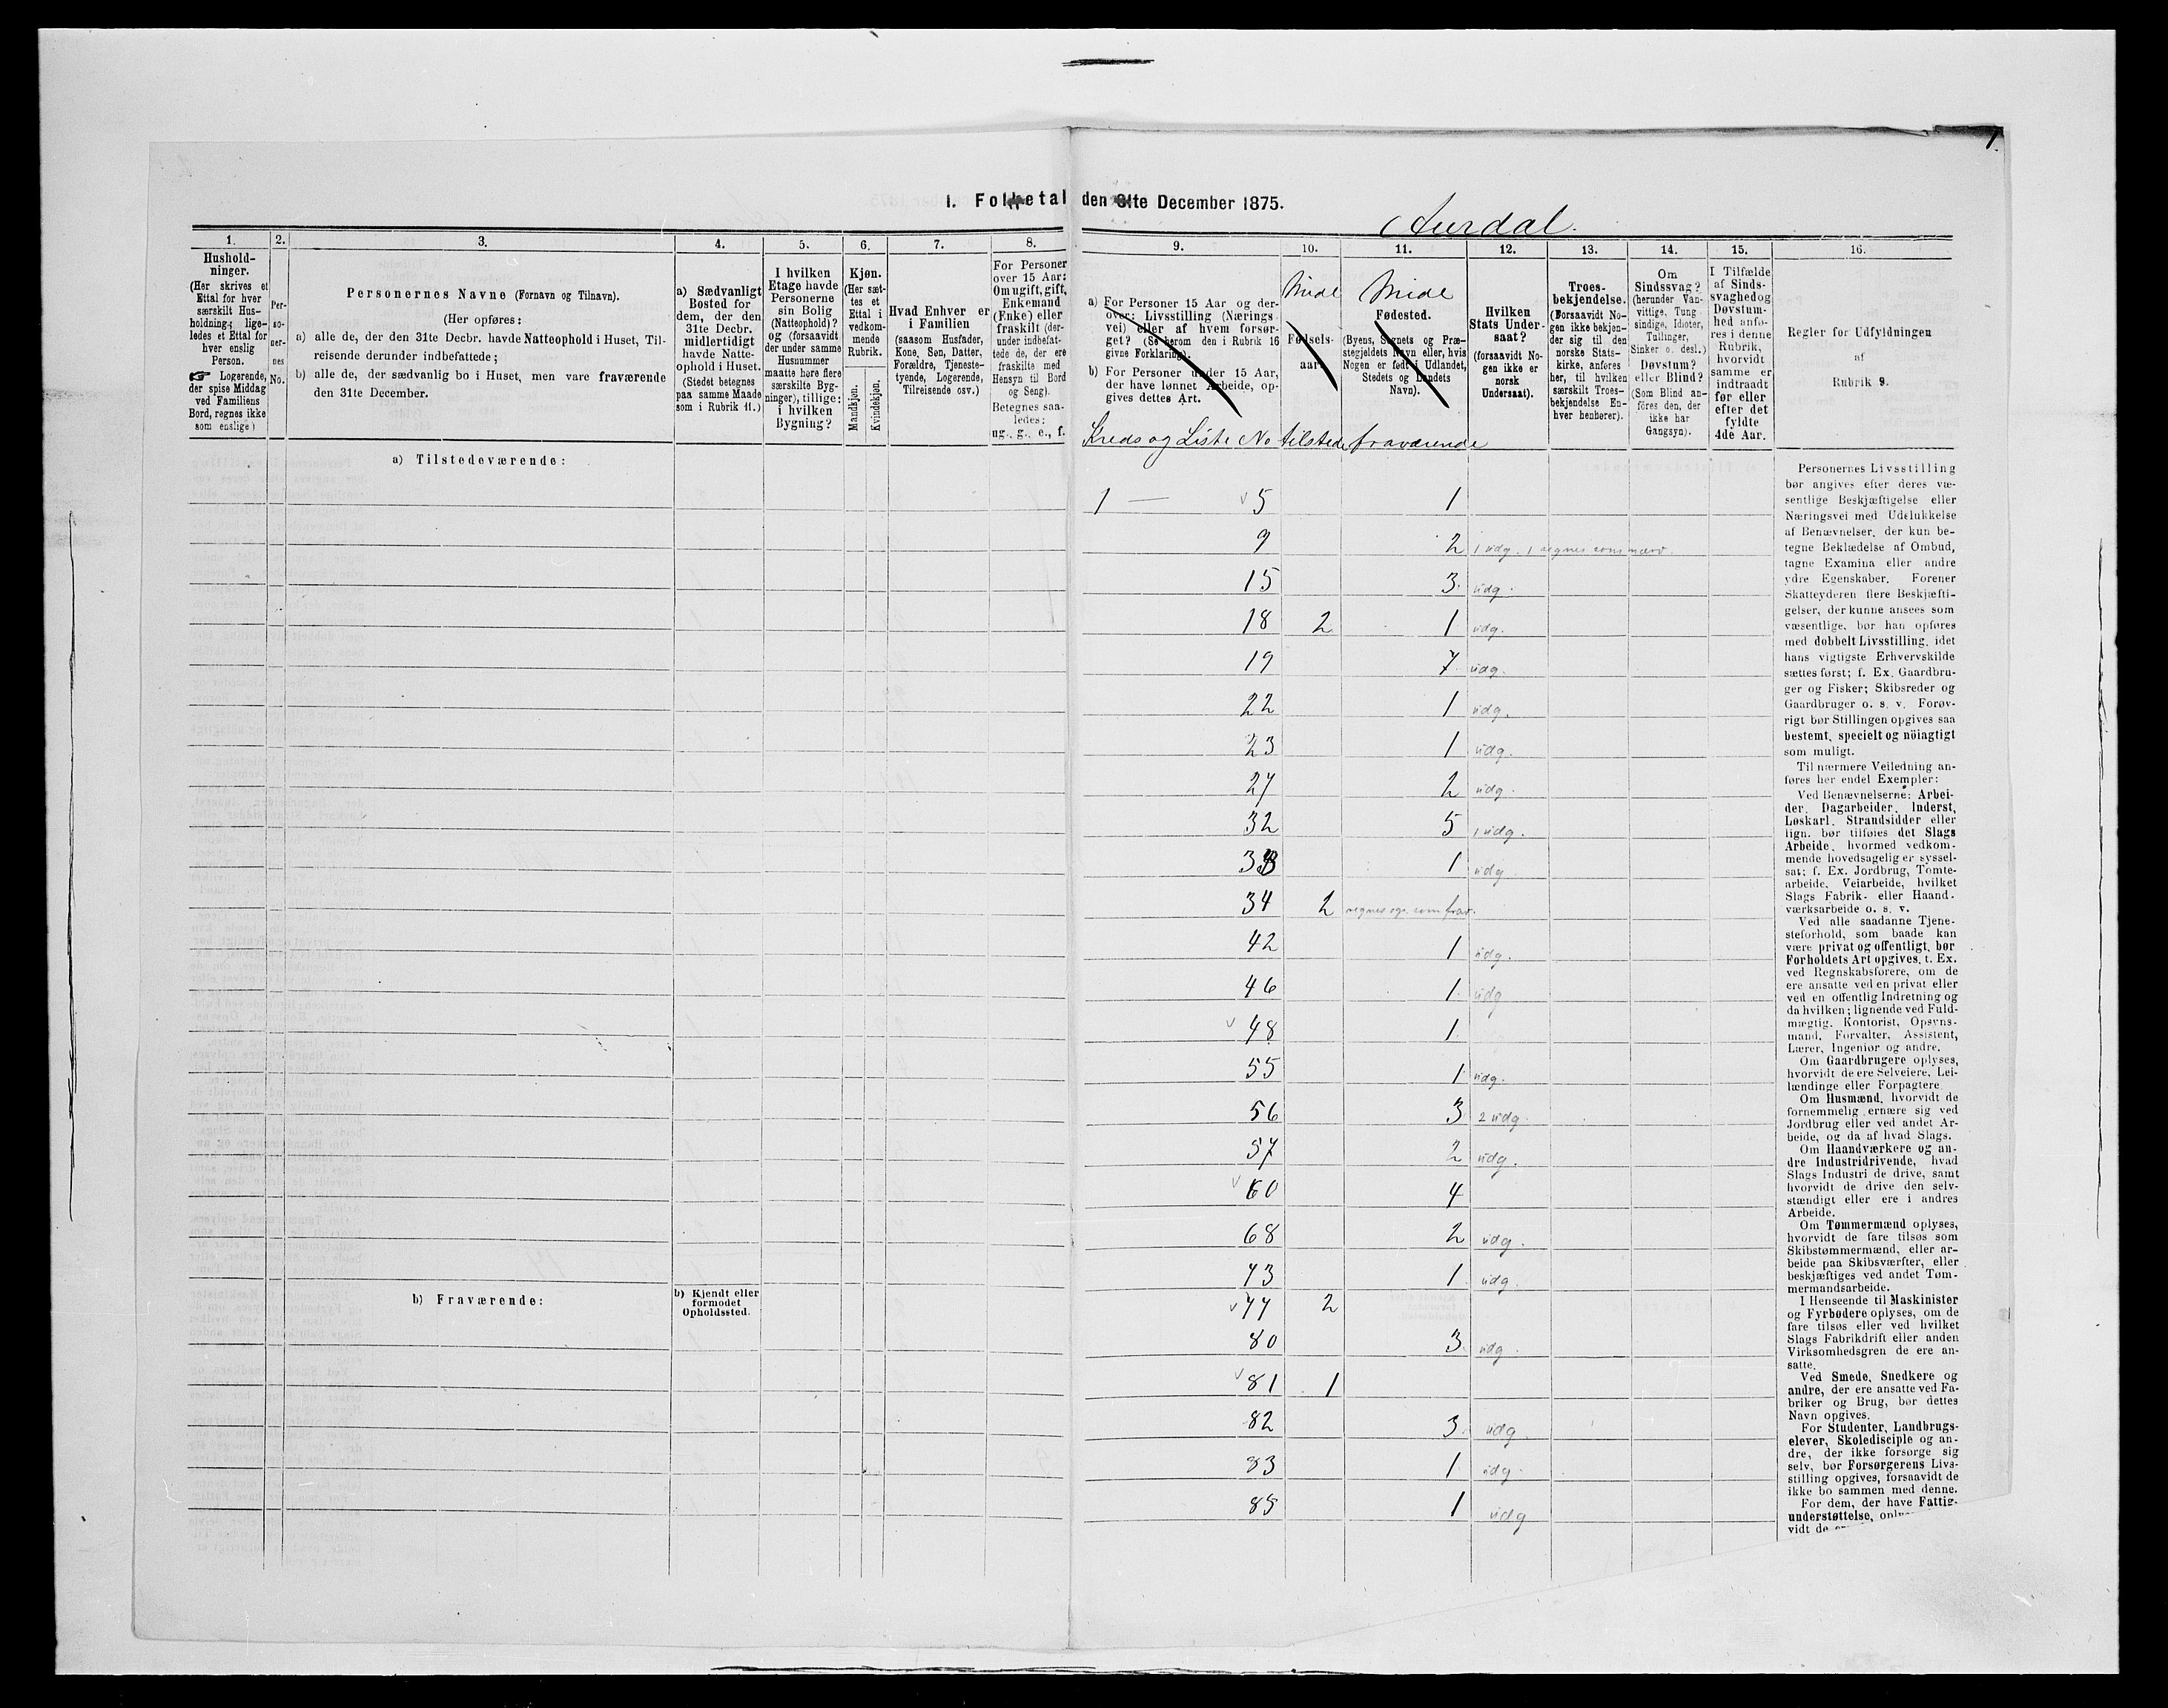 1.
I. Folketal den 31te December 1875.
Aurdal.
1.
Hushold-
ninger.
(Her skrives et
Ettal for hver
særskilt Hus-
holdning; lige-
ledes et Ettal for
hver enslig
Person.
☞ Logerende,
der spise Middag
ved Familiens
Bord, regnes ikke
som enslige)
2.
Per-
so-
ner-
nes
No.
3.
Personernes Navne (Fornavn og Tilnavn).
(Her opføres:
a) alle de, der den 31te Decbr. havde Natteophold i Huset, Til-
reisende derunder indbefattede;
b) alle de, der sædvanlig bo i Huset, men vare fraværende
den 31te December.
4.
a) Sædvanligt
Bosted for
dem, der den
31te Decbr.
midlertidigt
havde Natte-
ophold i Huset.
(Stedet betegnes
paa samme Maade
som i Rubrik 11.)
5.
I hvilken
Etage havde
Personerne
sin Bolig
(Natteophold)?
og (forsaavidt
der under samme
Husnummer
maatte høre flere
særskilte Byg-
ninger), tillige:
i hvilken
Bygning?
6.
Kjøn.
(Her sæt-
tes et
Ettal i
vedkom-
mende
Rubrik.
Mandkjøn.
Kvindekjøn.
7.
Hvad Enhver er
i Familien
(saasom Husfader,
Kone, Søn, Datter,
Forældre, Tjeneste-
tyende, Logerende,
Tilreisende osv.)
8.
For Personer
over 15 Aar:
Om ugift, gift,
Enkemand
(Enke) eller
fraskilt (der-
under indbefat-
tede de, der ere
fraskilte med
Hensyn til Bord
og Seng).
Betegnes saa-
ledes:
ug., g., e., f.
9.
a) For Personer 15 Aar og der-
over: Livsstilling (Nærings
vei) eller af hvem forsør-
get? (Se herom den i Rubrik 16
givne Forklaring).
b) For Personer under 15 Aar,
der have lønnet Arbeide, op-
gives dettes Art.
10.
Mide
Fødsels-
aar.
11.
Mide
Fødested.
(Byens, Sognets og Præ-
stegjeldets Navn eller, hvis
Nogen er født i Udlandet,
Stedets og Landets
Navn).
12.
Hvilken
Stats Under-
saat?
(forsaavidt No-
gen ikke er
norsk
Undersaat).
13.
Troes-
bekjendelse.
(Forsaavidt No-
gen ikke bekjen-
der sig til den
norske Stats-
kirke, anføres
her, til hvilken
særskilt Troes-
bekjendelse En-
hver henhører).
14.
Om
Sindssvag?
(herunder Van-
vittige, Tung
sindige, Idioter,
Tullinger,
Sinker o. desl.)
Døvstum?
eller Blind?
(Som Blind an-
føres den, der
ikke har
Gangsyn).
15.
I Tilfælde
af Sinds-
svaghed og
Døvstum-
hed anfø-
res i denne
Rubrik,
hvorvidt
samme er
indtraadt
før eller
efter det
fyldte
4de Aar.
16.
Regler for Udfyldningen
af
Rubrik 9.
Kreds og Liste No tilstede fraværende
a) Tilstedeværende:
1 — v 5 1
9 2 1 udg. 1 regnes som nærv
15 3. udg.
18 2 1 udg.
19 7 udg.
22 1 udg.
23 1 udg.
27 2 udg.
32 5 1 udg.
33 1 udg
34 2 regnes ogs. som frav.
42 1 udg.
46 1. udg
v 48 1.
55 1 udg.
56 3 2 udg.
57 2 udg.
v 60 4
68 2 udg.
73 1. udg.
b) Fraværende:
b) Kjendt eller
formodet
Opholdssted.
v 77 2
80 3. udg.
v 81 1
82 3. udg.
83 1. udg.
85 1 udg
Personernes Livsstilling
bør angives efter deres væ-
sentlige Beskjæftigelse eller
Næringsvei med Udelukkelse
af Benævnelser, der kun be-
tegne Beklædelse af Ombud,
tagne Examina eller andre
ydre Egenskaber. Forener
Skatteyderen flere Beskjæfti-
gelser, der kunne ansees som
væsentlige, bør han opføres
med dobbelt Livsstilling, idet
hans vigtigste Erhvervskilde
sættes først; f. Ex. Gaardbru-
ger og Fisker; Skibsreder og
Gaardbruger o. s. v. Forøv-
rigt bør Stillingen opgives saa
bestemt, specielt og nöiagtigt
som muligt.
Til nærmere Veiledning an-
føres her endel Exempler:
Ved Benævnelserne: Arbei-
der, Dagarbeider, Inderst,
Løskarl, Strandsidder eller
lign. bør tilføies det Slags
Arbeide, hvormed vedkom-
mende hovedsagelig er syssel-
sat; f. Ex. Jordbrug, Tomte-
arbeide, Veiarbeide, hvilket
Slags Fabrik- eller Haand-
værksarbeide o. s. v.
Ved alle saadanne Tjene-
steforhold, som baade kan
være privat og offentligt, bør
Forholdets Art opgives, t. Ex.
ved Regnskabsførere, om de
ere ansatte ved en privat eller
ved en offentlig Indretning og
da hvilken; lignende ved Fuld-
mægtig, Kontorist, Opsyns-
mand, Forvalter, Assistent,
Lærer, Ingeniør og andre.
Om Gaardbrugere oplyses,
hvorvidt de ere Selveiere, Lei-
lændinge eller Forpagtere.
Om Husmænd, hvorvidt de
fornemmelig ernære sig ved
Jordbrug eller ved andet Ar-
beide, og da af hvad Slags.
Om Haandværkere og an-
dre Industridrivende, hvad
Slags Industri de drive, samt
hvorvidt de drive den selv-
stændigt eller ere i andres
Arbeide.
Om Tømmermænd oplyses,
hvorvidt de fare tilsøs som
Skibstømmermænd, eller ar-
beide paa Skibsværfter, eller
beskjæftiges ved andet Tøm-
mermandsarbeide.
I Henseende til Maskinister
og Fyrbødere oplyses, om de
fare tilsøs eller ved hvilket
Slags Fabrikdrift eller anden
Virksomhedsgren de ere an-
satte.
Ved Smede, Snedkere og
andre, der ere ansatte ved Fa-
briker og Brug, bør dettes
Navn opgives.
For Studenter, Landbrugs-
elever, Skoledisciple og an-
dre, der ikke forsørge sig
selv, bør Forsørgerens Livs-
stilling opgives, forsaavidt de
ikke bo sammen med denne.
For dem, der have Fattig-
understøttelse,
vidt de